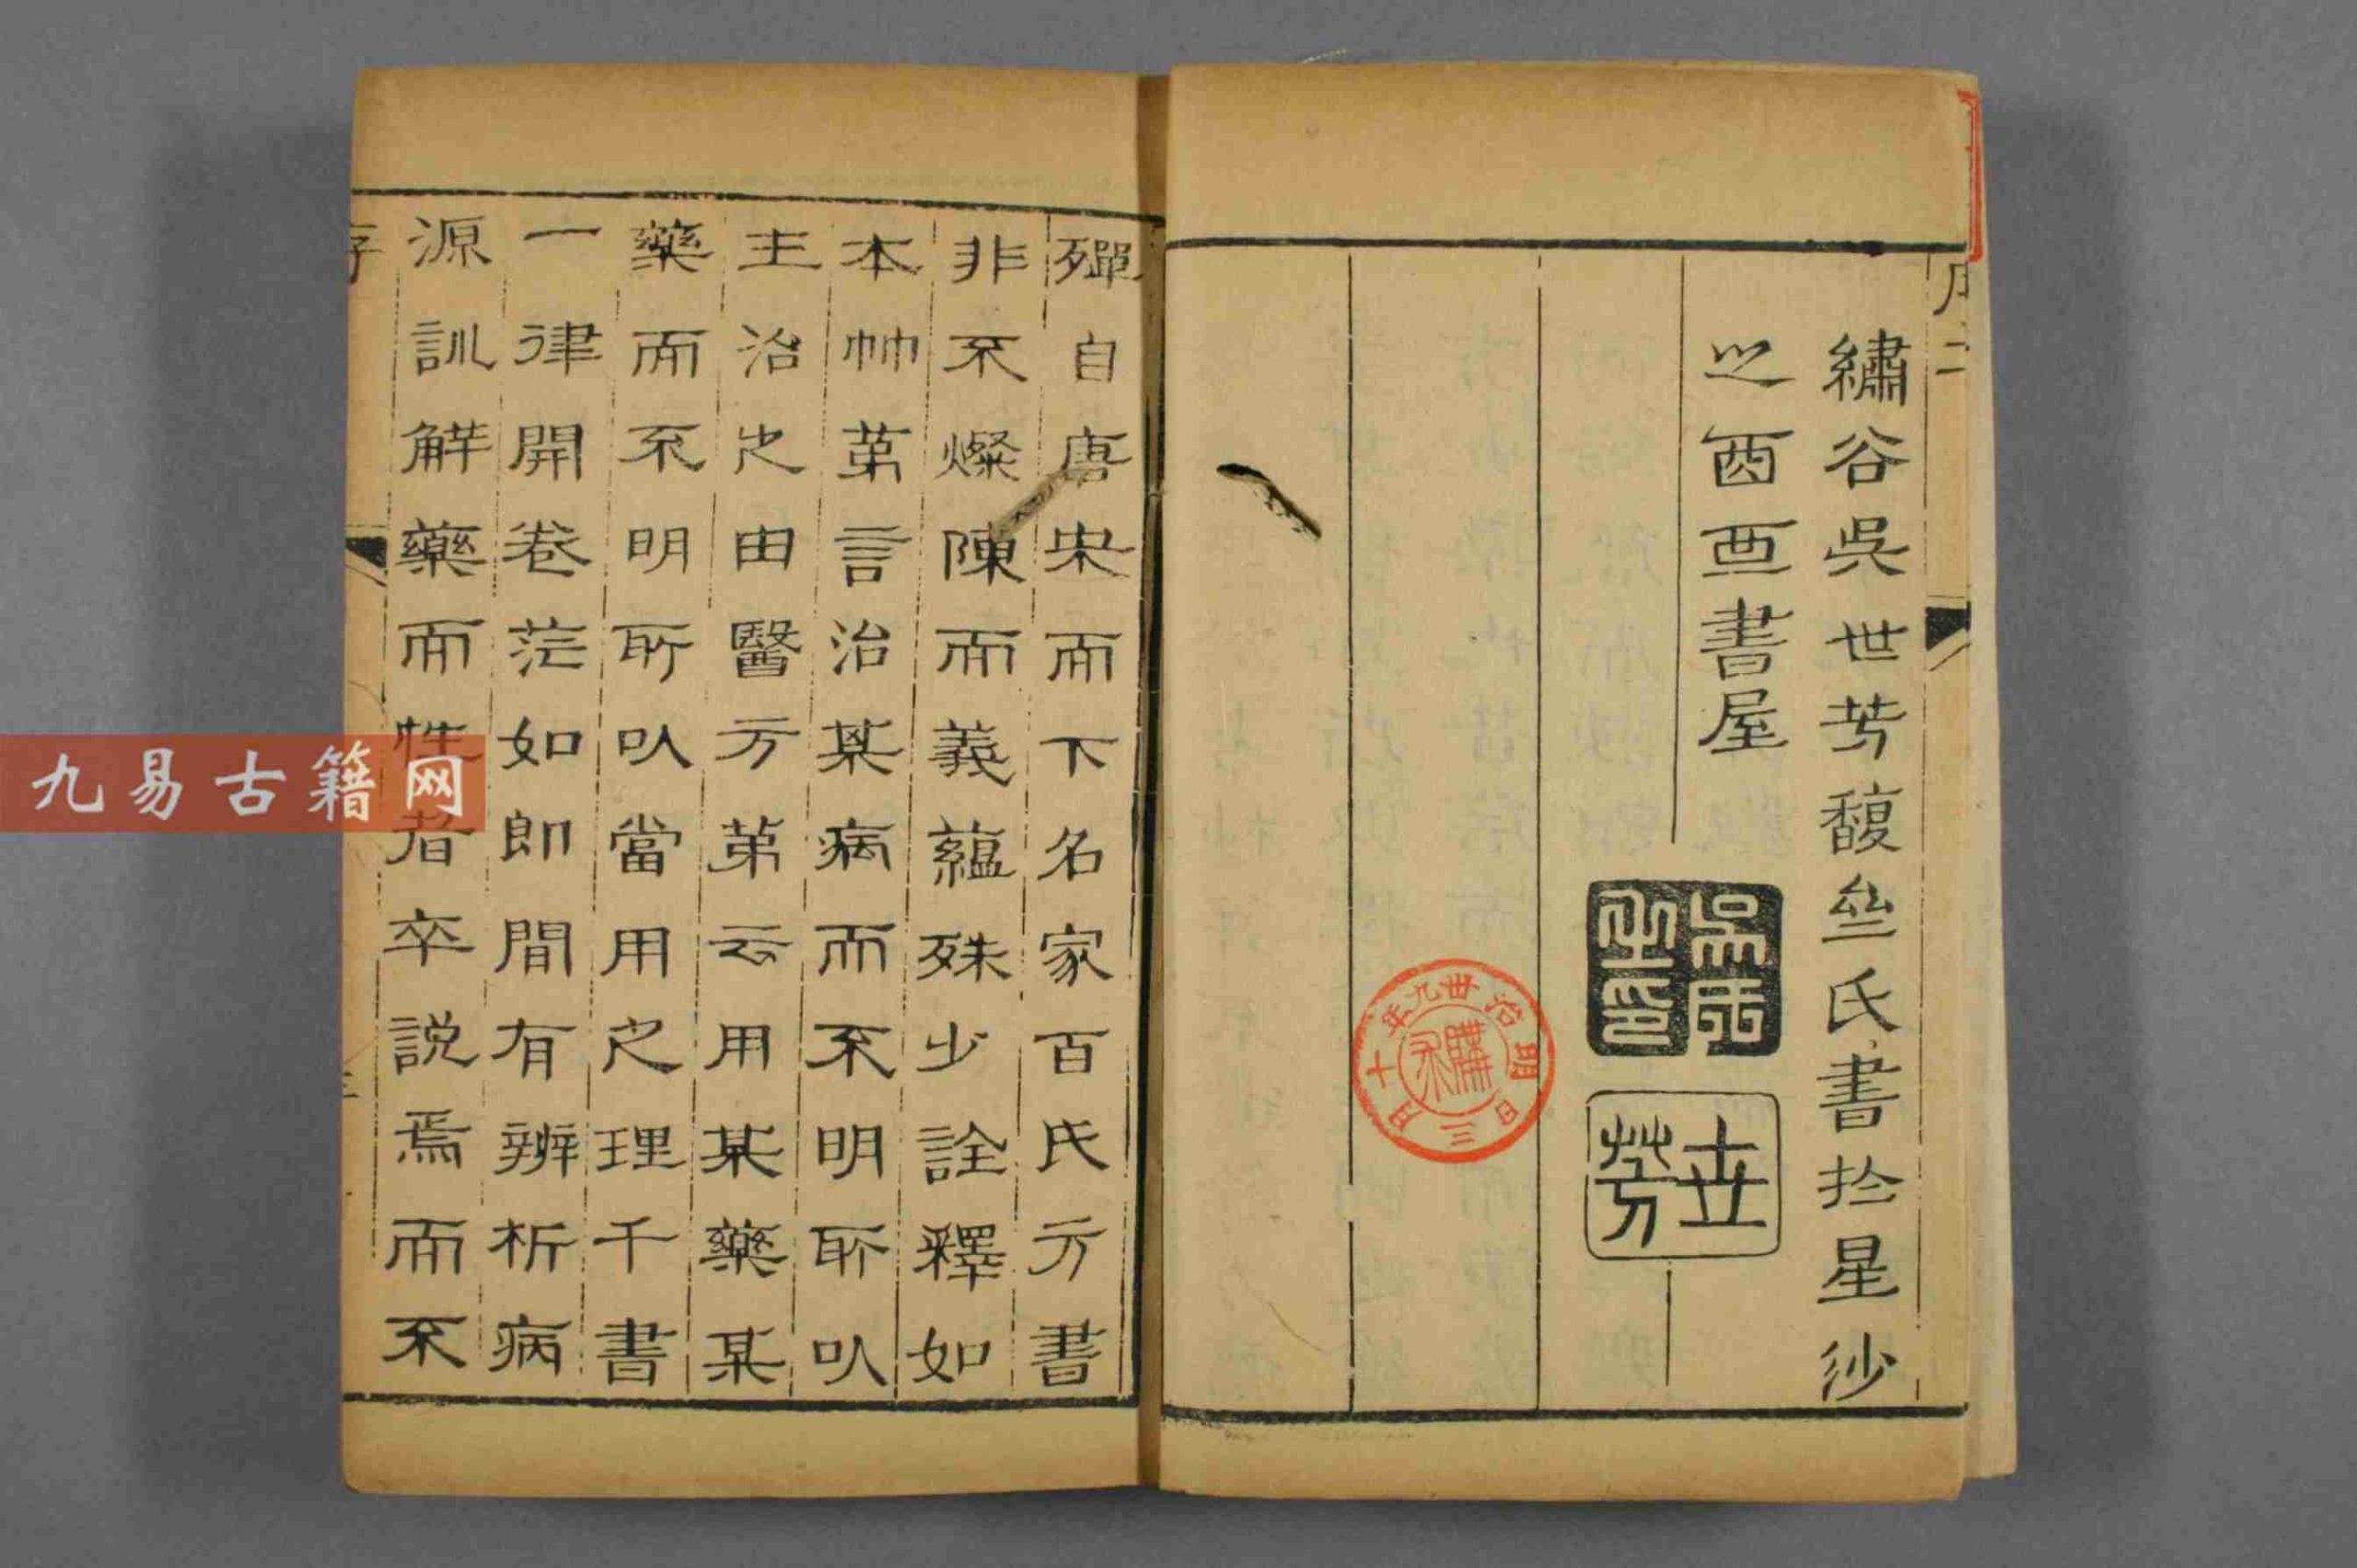 繡谷吳世芳馥垒氏書於星沙
之酉西書屋
世芳
明治卅九年十月三日
購求
殫自唐宋而下名家百氏方書
非不燦陳而義蘊殊少詮釋如
本艸第言治某病而不明所以
主治之由醫方第云用某藥某
藥而不明所以當用之理千書
一律開卷茫如即間有辨析病
源訓解藥而性者卒説焉而不
序
九易古籍网